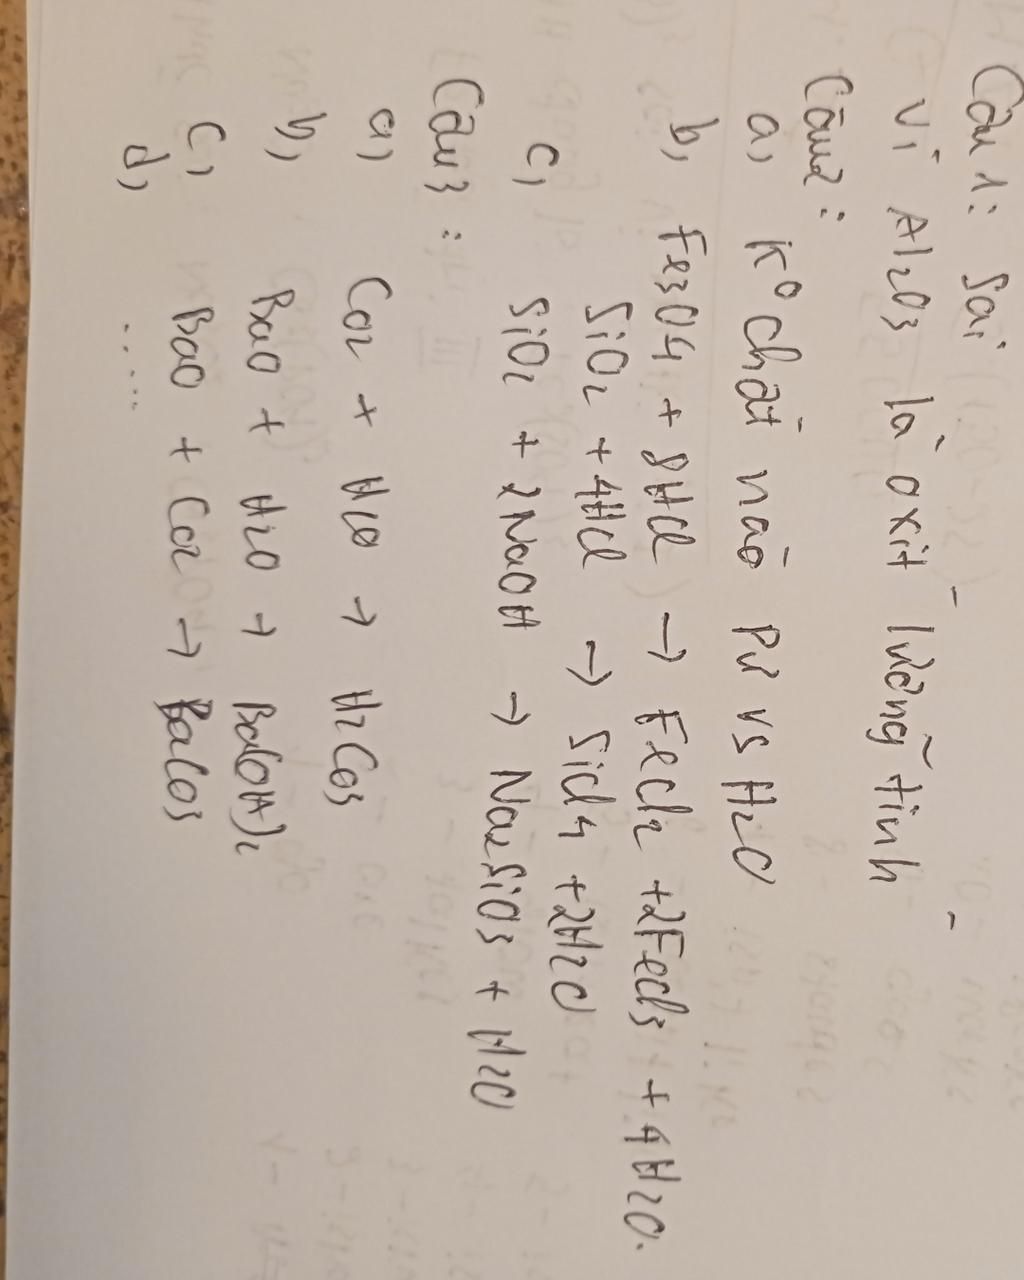 Câu 1: Sai
Vì Al2O3 là oxit lưỡng tính
Câu 2:
a, K° chất nào pư vs H2O
b, Fe3O4 + 8HCl → FeCl2 + 2FeCl3 + 4H2O.
SiO2 + 4HCl → SiCl4 + 2H2O
c, SiO2 + 2NaOH → Na2SiO3 + H2O
Câu 3:
a, CO2 + H2O → H2CO3
b, BaO + H2O → Ba(OH)2
c, BaO + CO2 → BaCO3
d, .....